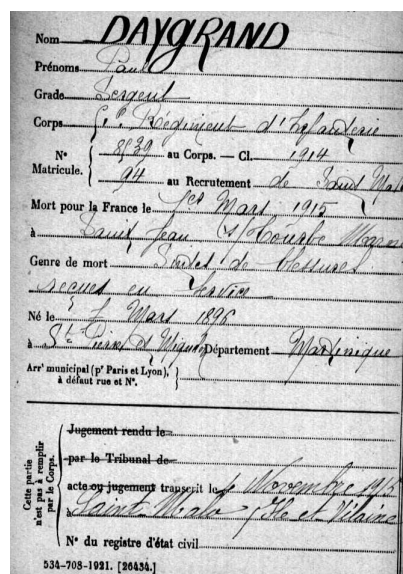 Nom DAYGRAND
Prénoms Paul
Grade Sergent
Corps Régiment d'Infanterie
N° Matricule. { 8539 au Corps. — Cl. 1914
94 au Recrutement de Saint Malo
Mort pour la France le 1er Mars 1915
à Saint Jean s/ Tourbe Marne
Genre de mort Suites de blessures
reçues en service
Né le Mars 1896
à St Pierre et Miquelon Département Martinique
Arrt municipal (pr Paris et Lyon),
à défaut rue et N°. }
Cette partie n'est pas à remplir par le Corps.
Jugement rendu le
par le Tribunal de
acte ou jugement transcrit le Novembre 1915
à Saint Malo, Ille et Vilaine
N° du registre d'état civil
534-708-1921. [26434.]